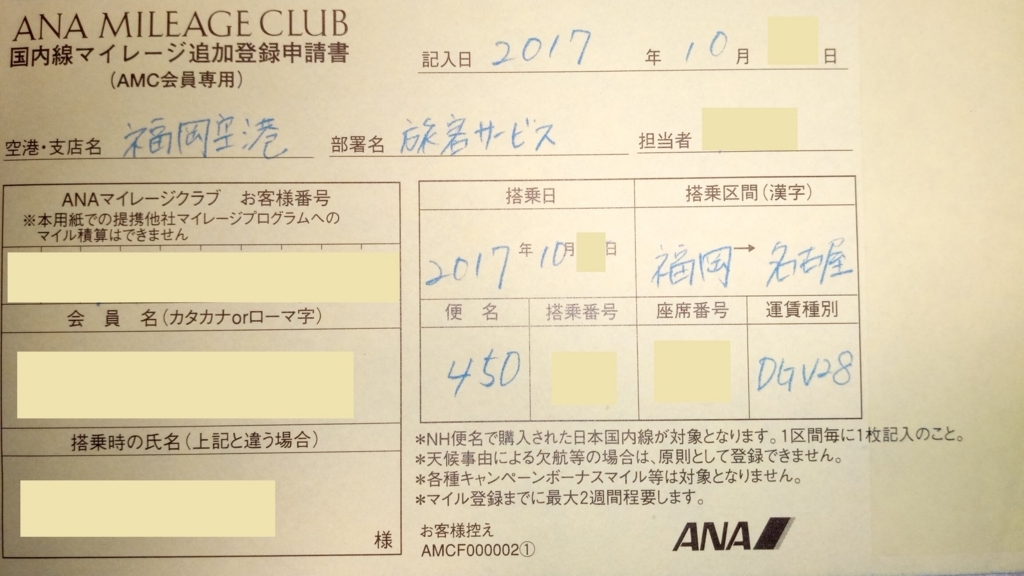 ANA MILEAGE CLUB
国内線マイレージ追加登録申請書
(AMC会員専用)
記入日 2017 年 10 月 日
空港・支店名 福岡空港 部署名 旅客サービス 担当者
ANAマイレージクラブ お客様番号
※本用紙での提携他社マイレージプログラムへの
マイル積算はできません
会 員 名(カタカナorローマ字)
搭乗時の氏名(上記と違う場合)
様
搭乗日 搭乗区間(漢字)
2017 年 10 月 日 福岡 → 名古屋
便 名 搭乗番号 座席番号 運賃種別
450 DGV28
*NH便名で購入された日本国内線が対象となります。1区間毎に1枚記入のこと。
*天候事由による欠航等の場合は、原則として登録できません。
*各種キャンペーンボーナスマイル等は対象となりません。
*マイル登録までに最大2週間程要します。
お客様控え
AMCF000002①
ANA